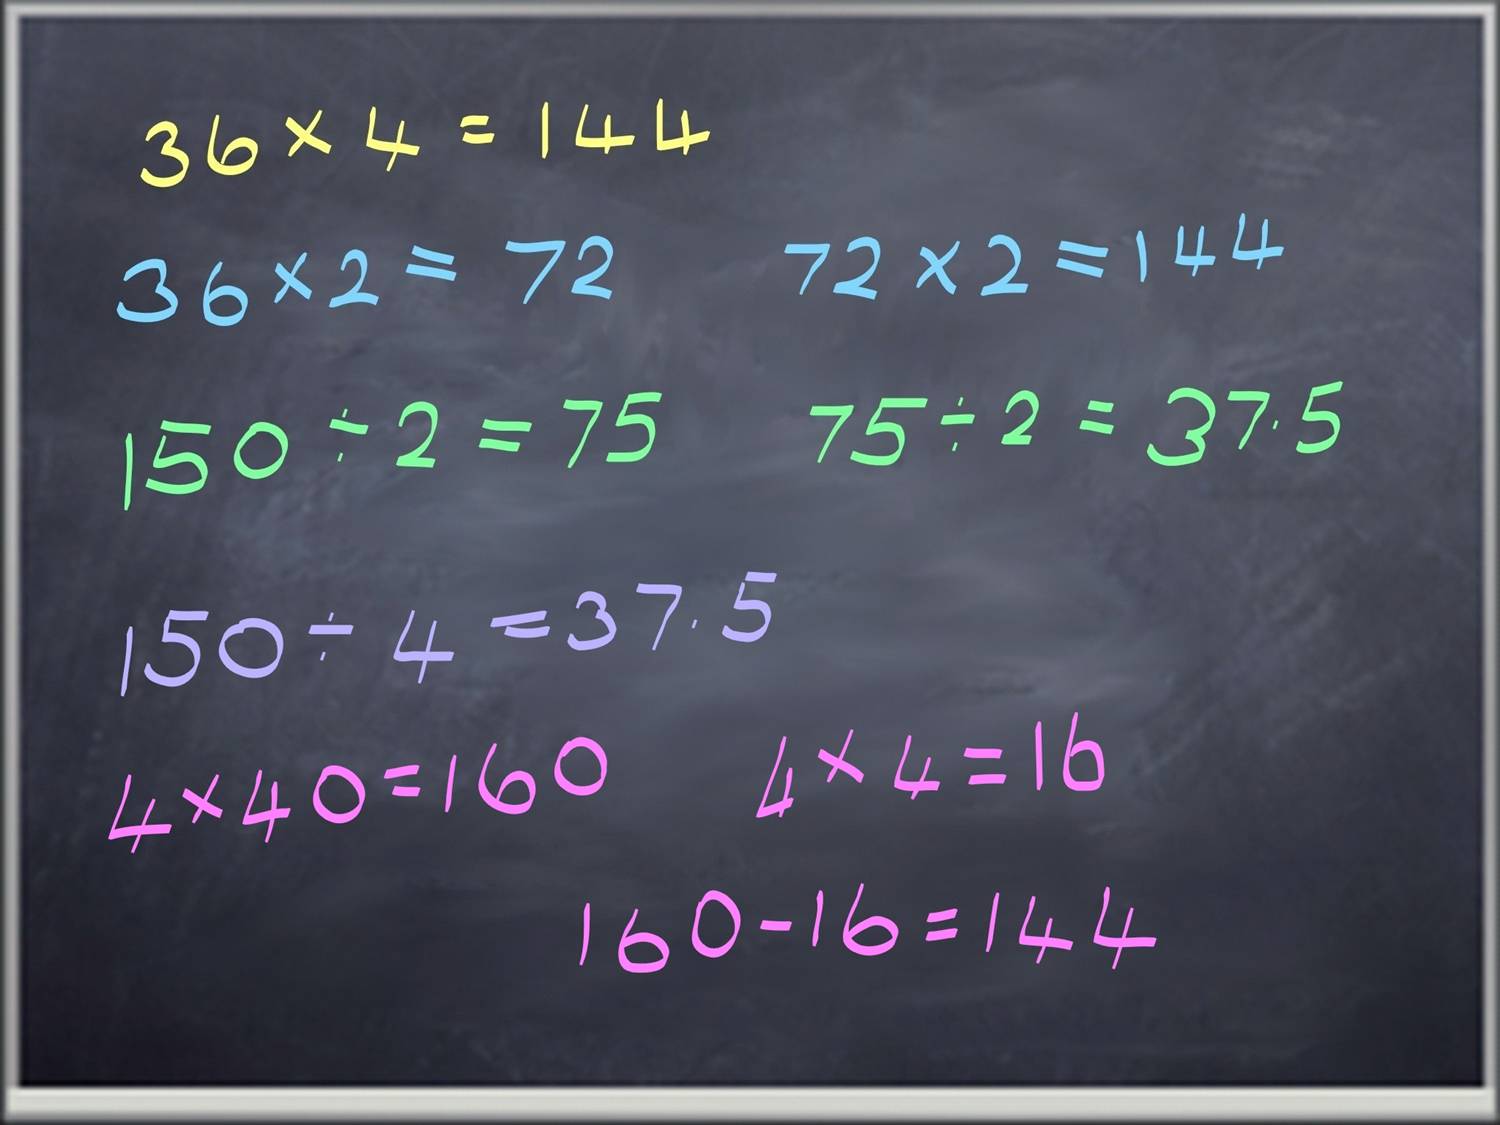 36 × 4 = 144
36 × 2 = 72 72 × 2 = 144
150 ÷ 2 = 75 75 ÷ 2 = 37.5
150 ÷ 4 = 37.5
4 × 40 = 160 4 × 4 = 16
160 - 16 = 144